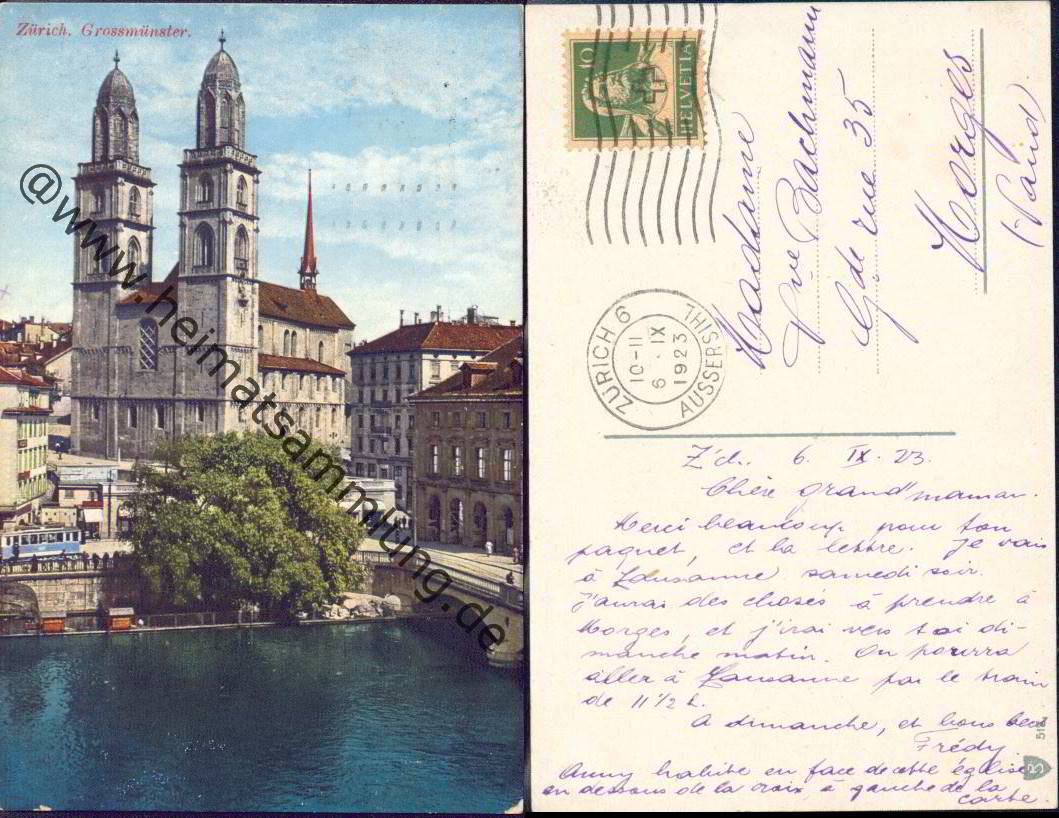 Zürich. Grossmünster.
@www.heimatsammlung.de
10
HELVETIA
ZÜRICH 6
10-11
6 · IX
1923
AUSSERSIHL
Madame
Bachmann
Gde rue 35
Morges
(Vaud)
Z'ch. 6. IX. 23.
Chère grand'maman.
Merci beaucoup pour ton
paquet, et la lettre. Je vais
à Lausanne samedi soir.
J'aurai des choses à prendre à
Morges, et j'irai vers toi di-
manche matin. On pourra
aller à Lausanne par le train
de 11 1/2 h.
A dimanche, et bons
Frédy
Anny habite en face de cette église
en dessous de la croix à gauche de la
carte.